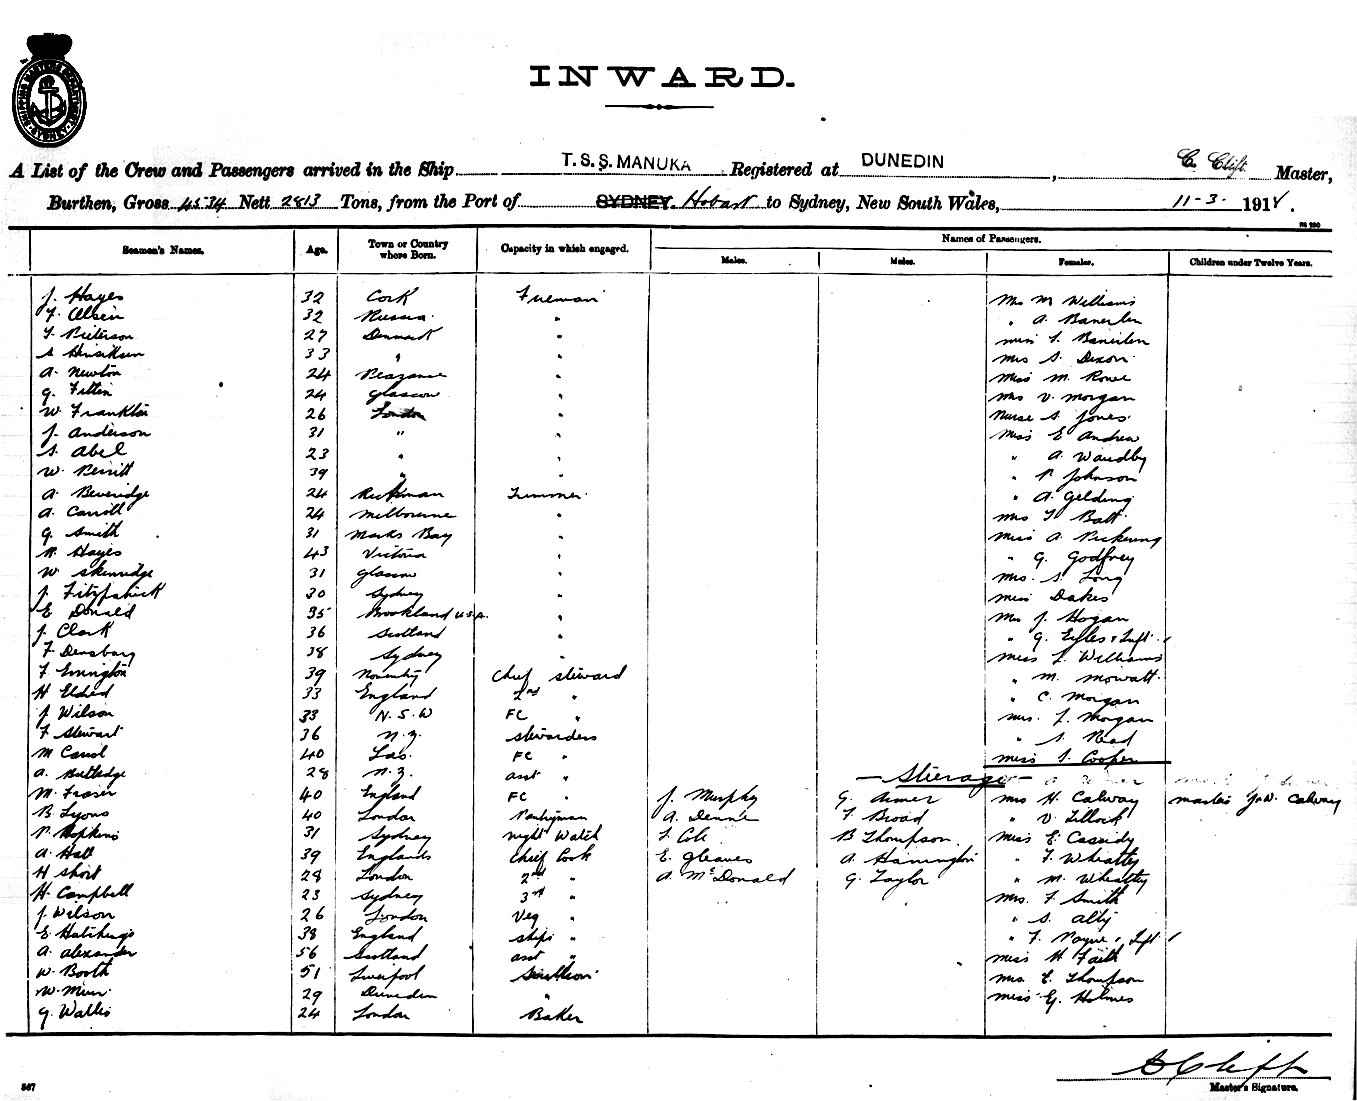 INWARD.
A List of the Crew and Passengers arrived in the Ship T.S.S. MANUKA Registered at DUNEDIN, C. Clift Master,
Burthen, Gross 4534 Nett 2813 Tons, from the Port of SYDNEY. Hobart to Sydney, New South Wales, 11-3- 1914.
Seamen's Names. Age. Town or Country where Born. Capacity in which engaged. Names of Passengers.
Males. Males. Females. Children under Twelve Years.
J. Hayes 32 Cork Fireman Mrs M Williams
F. Olsen 32 Russia " " A.
F. Pieterson 27 Denmark " Miss
S Henriksen 33 " " Mrs S. Dixon
A. Newton 24 " Miss M. Rowe
G. 24 Glasgow " Mrs V. Morgan
W Franklin 26 London " Nurse S Jones
J. Anderson 31 " " Miss E Andrew
S. Abel 23 " " " A. Waudby
W. 39 " " " P. Johnson
A. Beveridge 24 Trimmer " A. Gelding
A. Carroll 24 Melbourne " Mrs Batt
G. Smith 31 Marks Bay " Miss A Pickering
R. Hayes 43 Victoria " " G. Godfrey
W Skenridge 31 Glasgow " Mrs. S. Long
J. Fitzpatrick 30 Sydney " Miss Dakes
E Donald 35 Brookland U.S.A. " Mrs J. Hogan
J. Clark 36 Scotland " " G. Eyles & Inft. 1
F. Densbury 38 Sydney " Miss L. Williams
F Errington 39 Chief Steward " M. Mowatt
H Elded 33 England 2nd " " C. Morgan
J Wilson 33 N.S.W FC " Mrs. L. Morgan
F Stewart 36 N.Z. Stewardess " S. Read
M Carrol 40 Tas. FC " Miss S. Cooper
A. Rutledge 28 N.Z. asst " — Stierage —
M. Fraser 40 England FC " J. Murphy G. Aimer Mrs H. Calway Master J.W. Calway
B. Lyons 40 London Pantryman A. Dennis F Broad " V Illock
P. Hopkins 31 Sydney Night Watch L. Cole B Thompson. Miss E. Cassidy
A. Hall 39 England Chief Cook E. Gleaves A Harrington " F. Wheatley
H Short 28 London 2nd " A. McDonald G. Taylor " M. Wheatley
H. Campbell 23 Sydney 3rd " Mrs. F Smith
J. Wilson 26 London Veg " " S. Alty
E Hatchings 38 England Ships " " F. Payne & Inft 1
A. Alexander 56 Scotland asst " Miss H Faith
W. Booth 51 Liverpool Scullion Mrs E. Thompson
W. Muir 29 Dunedin " Miss G. Holmes
G. Wallis 24 London Baker
C Clift
Master's Signature.
567